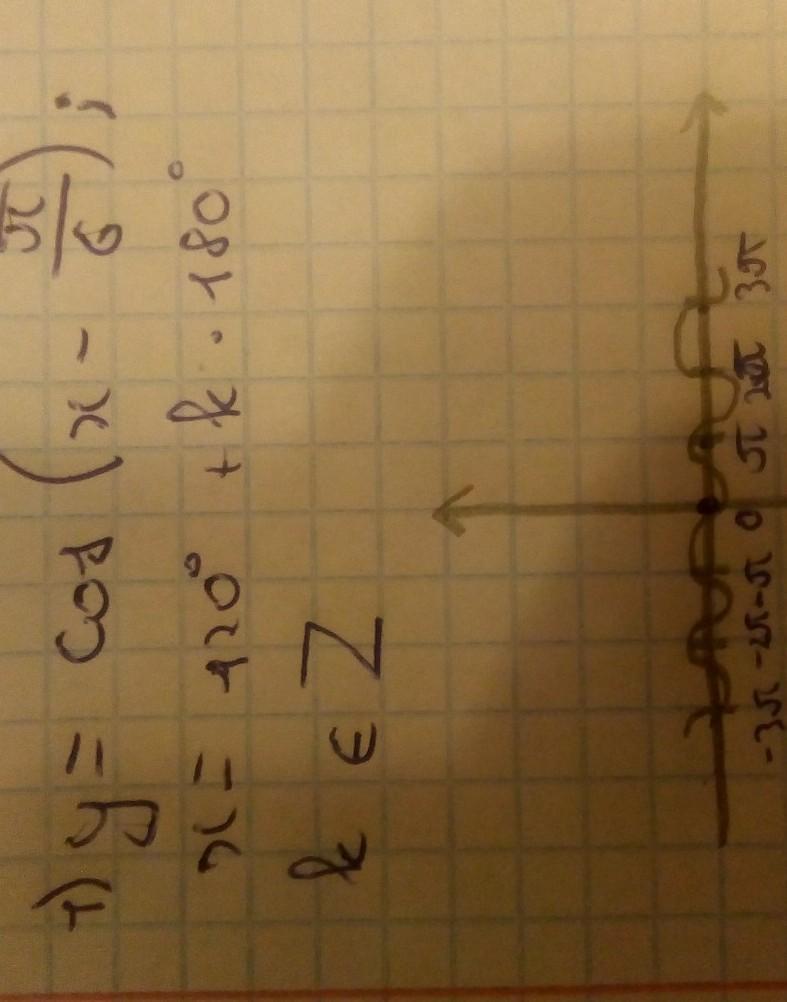 1) y = cos (x - π/6);
x = 120° + k · 180°
k ∈ Z
-3π -2π -π 0 π 2π 3π